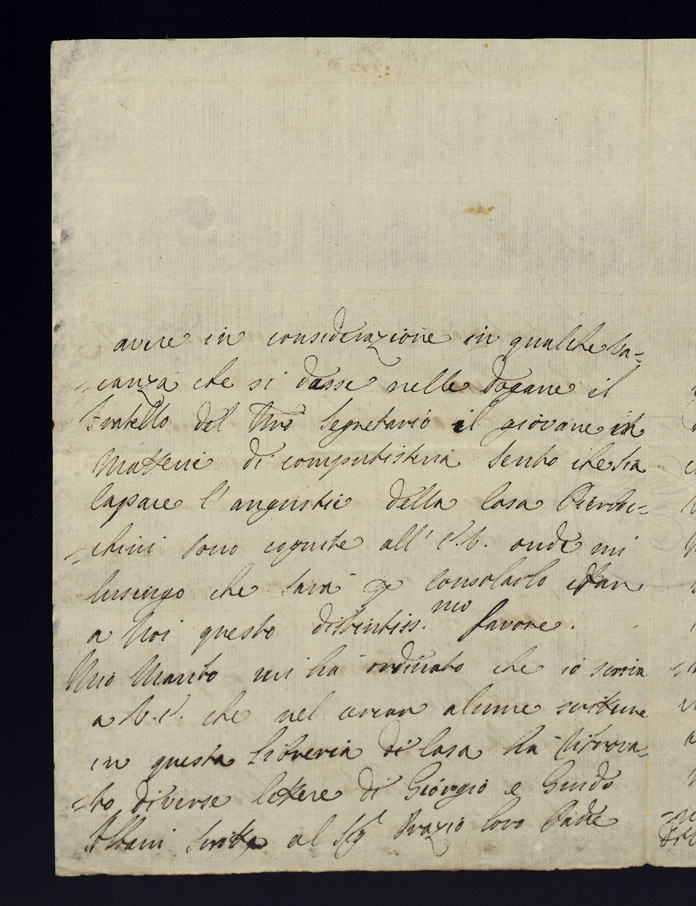 avere in considerazione in qualche va-
-canza che si dasse nelle Dogane il
Fratello del Nro Segretario il giovane in
Materie di computisteria sento che sia
Capace l'angustie della Casa Pierbe-
-chini sono cognite all' V.S. onde mi
lusingo che sarà p consolarlo e far
a Noi questo distintiss.mo favore.
Mio Marito mi ha ordinato che io scriva
a V.S. che nel cercar alcune scritture
in questa Libreria di Casa ha ritrova-
-to diverse lettere di Giorgio e Guido
Albani scritte al Sigr Orazio loro Padre